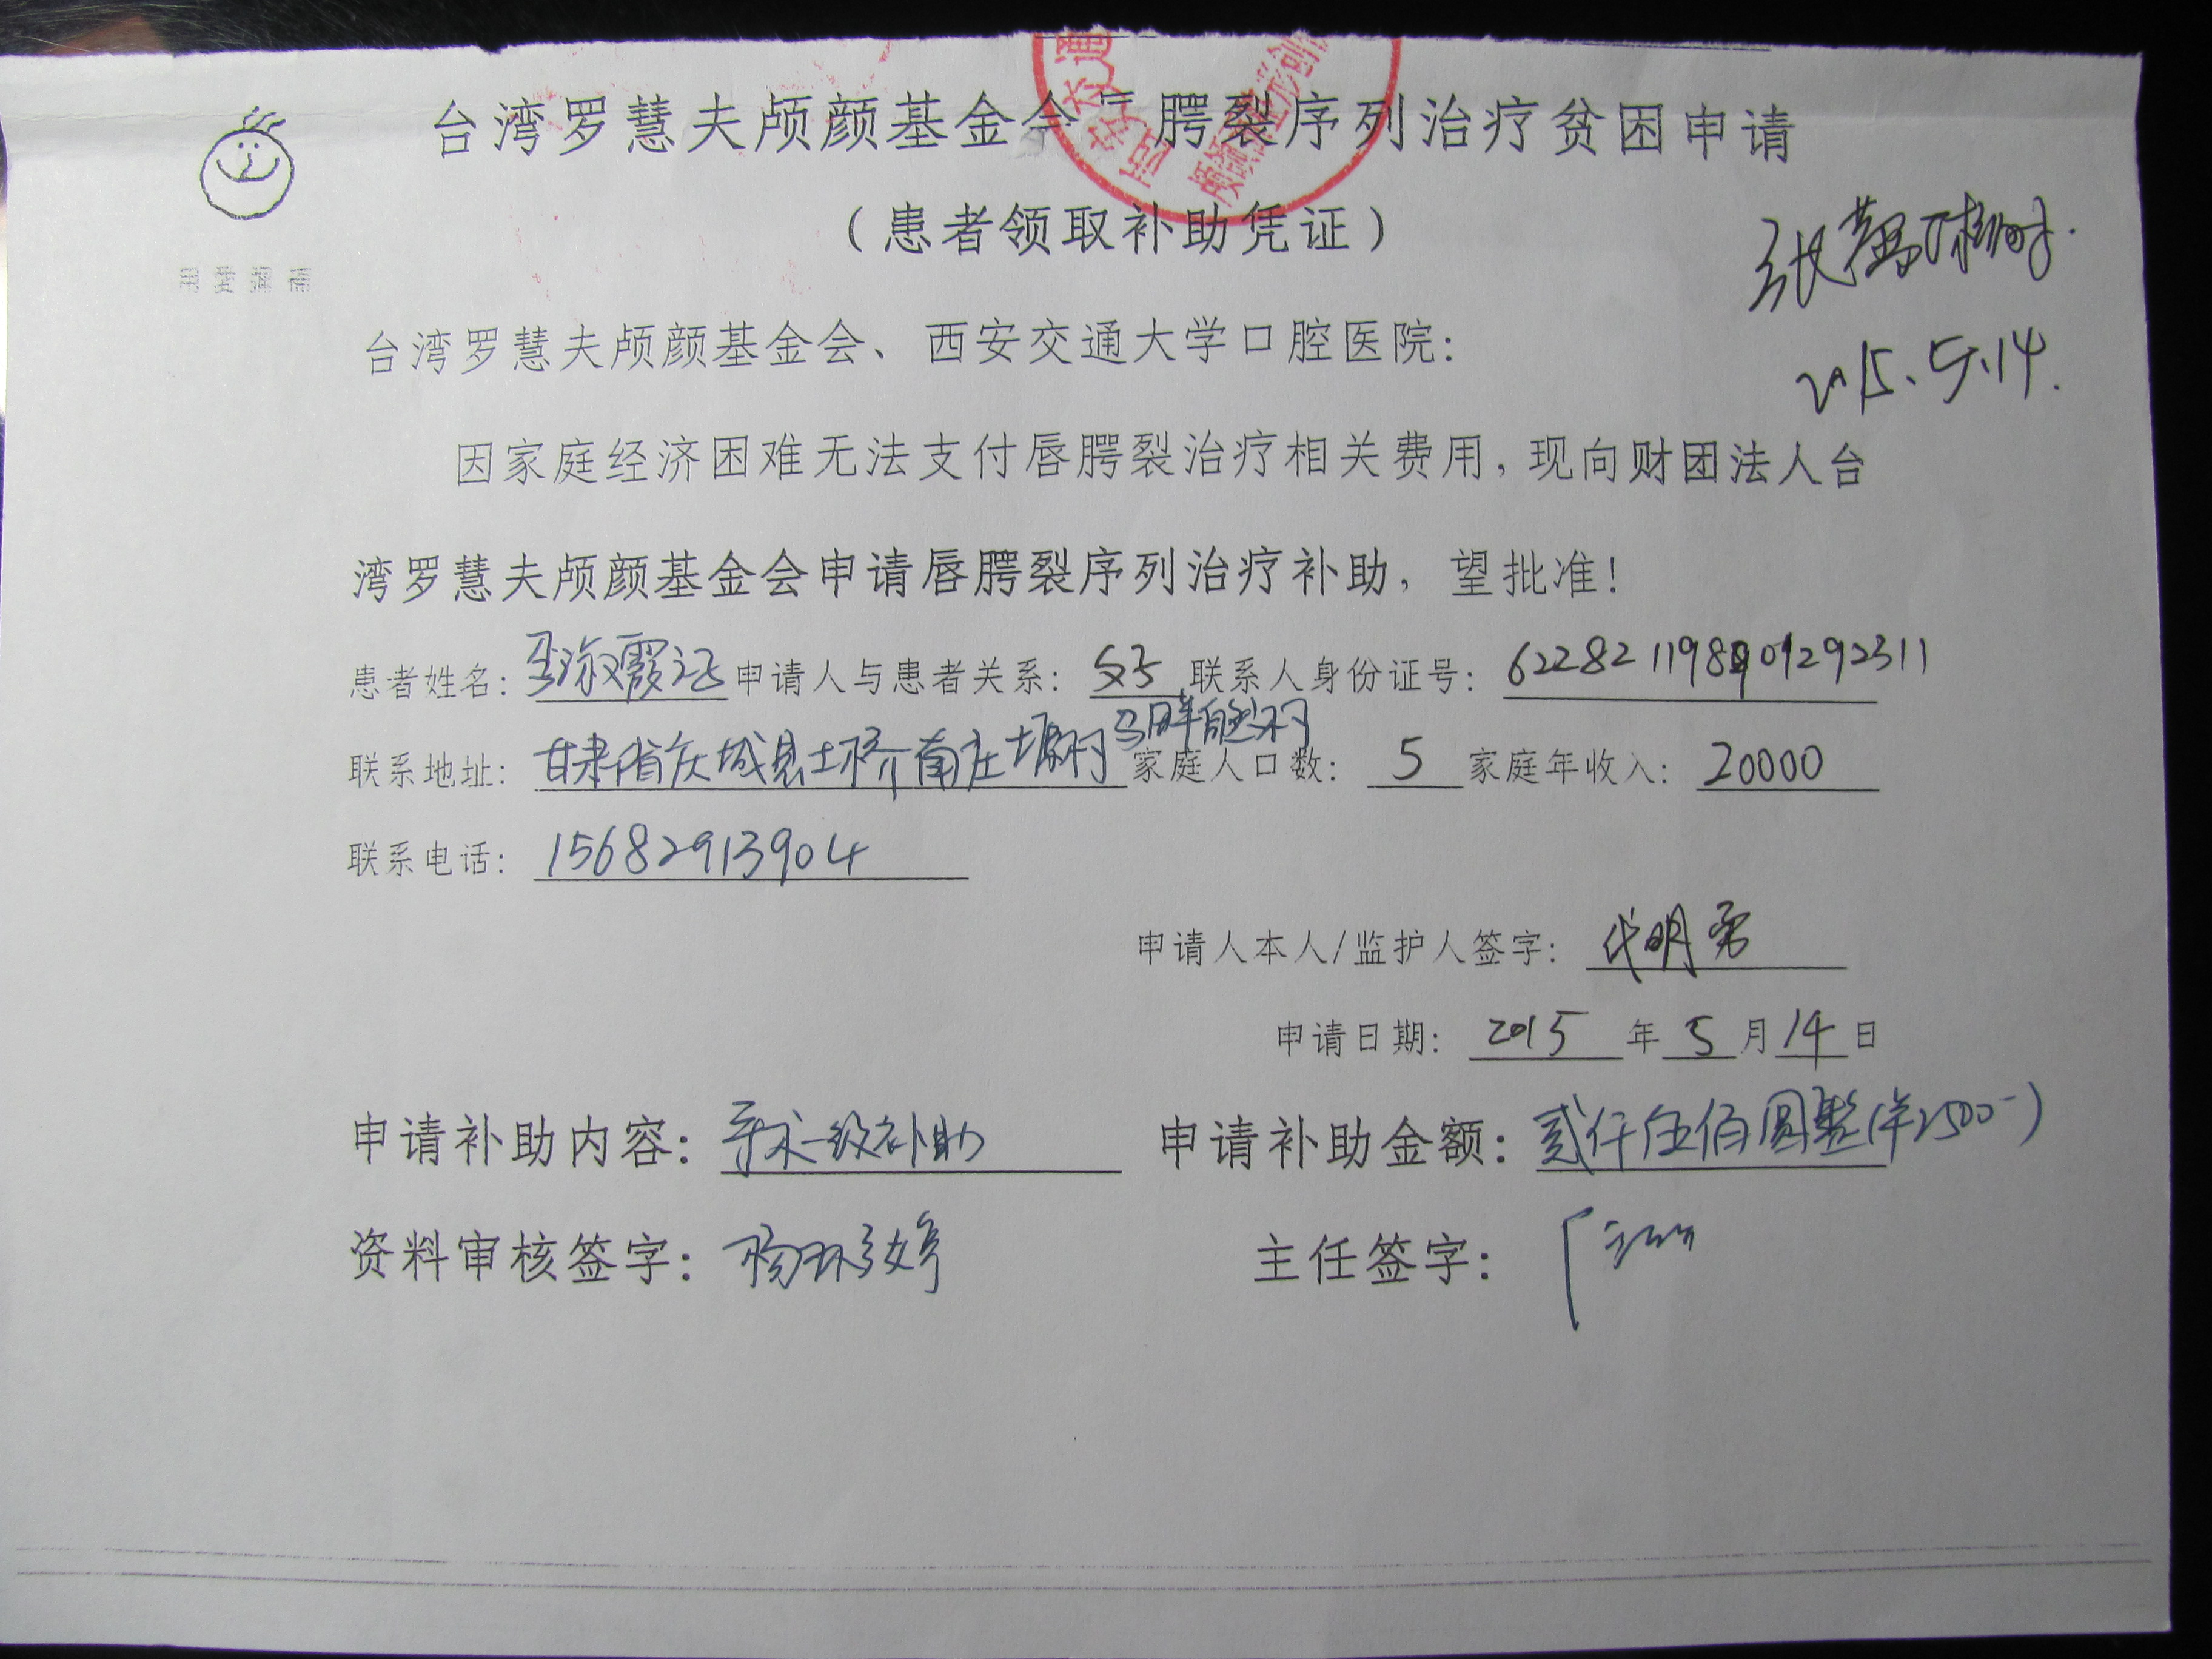 台湾罗慧夫颅颜基金会 腭裂序列治疗贫困申请
(患者领取补助凭证)
用爱弥补
2015.5.14.
台湾罗慧夫颅颜基金会、西安交通大学口腔医院:
因家庭经济困难无法支付唇腭裂治疗相关费用,现向财团法人台
湾罗慧夫颅颜基金会申请唇腭裂序列治疗补助,望批准!
患者姓名: 申请人与患者关系:父子 联系人身份证号:
联系地址:甘肃省庆城县土桥南庄塬村 家庭人口数:5 家庭年收入:20000
联系电话:15682913904
申请人本人/监护人签字:代明勇
申请日期:2015年5月14日
申请补助内容:手术一级补助 申请补助金额:贰仟伍佰圆整(羊2500-)
资料审核签字: 主任签字: